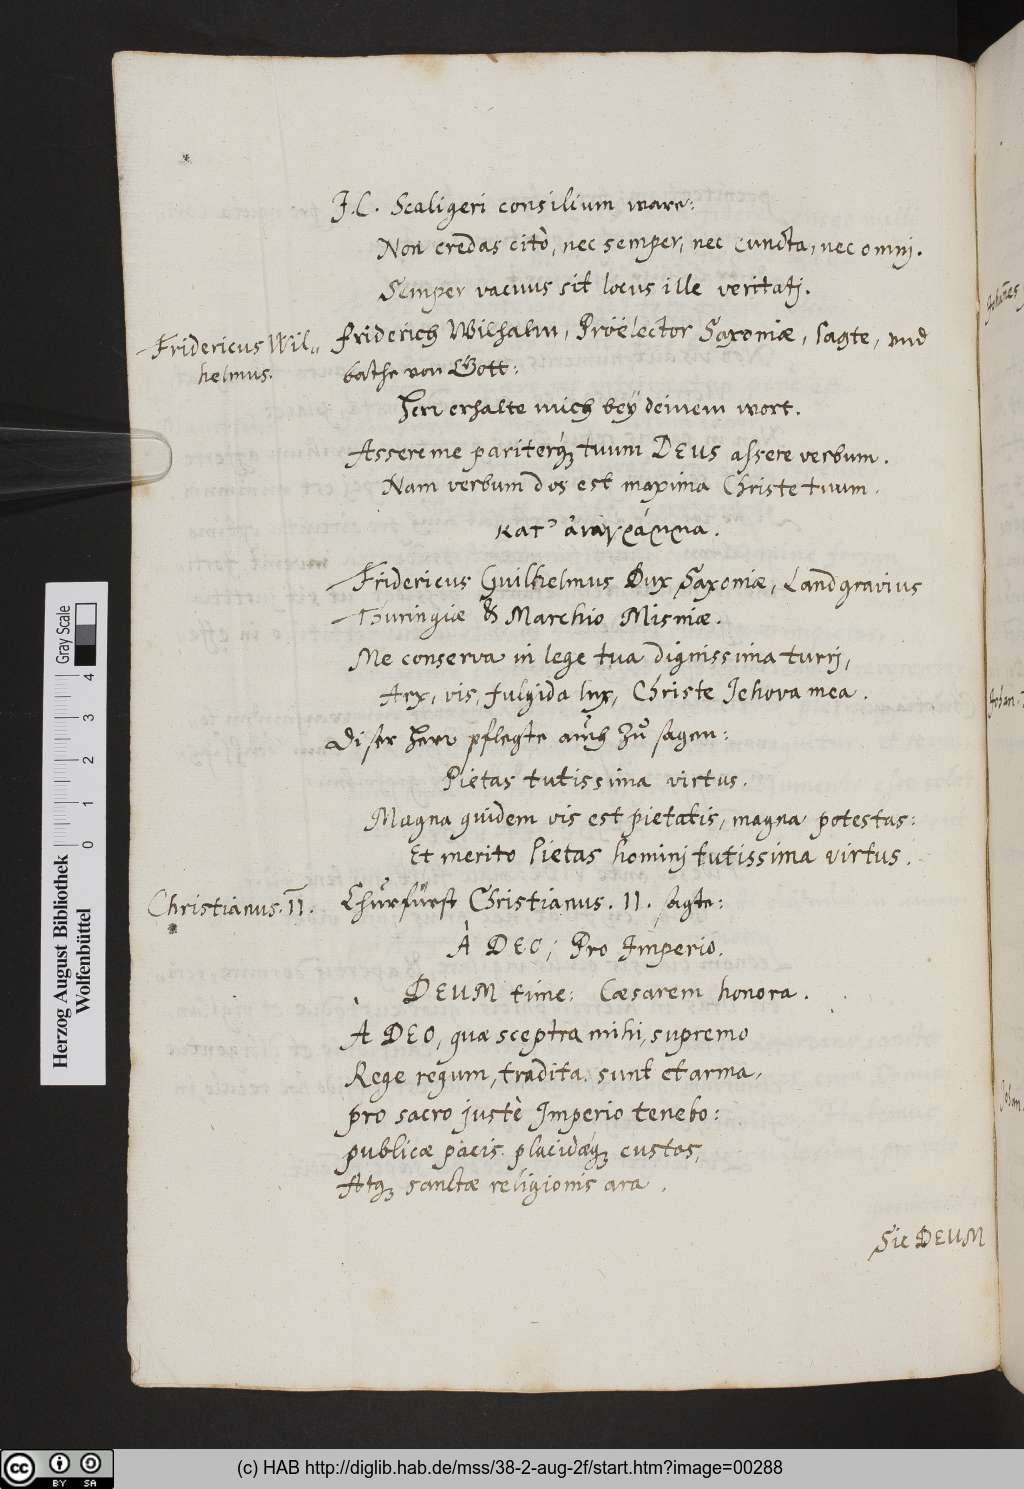 J. C. Scaligeri consilium ware:
Non credas citò, nec semper, nec cuncta, nec omnj.
Semper vacuus sit locus ille veritatj.
Fridericus Wil„
helmus.
Friderich Wilhalm, Proëlector Saxoniæ, sagte, vnd
bathe von Gott:
Herr erhalte mich beÿ deinem wort.
Assere me pariterq́ꝫ tuum DEUS assere verbum.
Nam verbum dos est maxima Christe tuum.
κατ' ἀνάγραμμα.
Fridericus Guilhelmus Dux Saxoniæ, Landgravius
Thuringiæ & Marchio Misniæ.
Me conserva in lege tua dignissima turrj,
Arx, vis, fulgida lux, Christe Jehova mea.
Diser Herr pflegte auch zů sagen:
Pietas tutissima virtus.
Magna quidem vis est pietatis, magna potestas:
Et merito Pietas hominj tutissima virtus.
Christianus. II.
Churfürst Christianus. II. sagte:
À DEO, Pro Imperio.
DEUM time: Cæsarem honora.
À DEO, quæ sceptra mihi, supremo
Rege regum, tradita sunt et arma,
pro sacro justè Imperio tenebo:
publicæ pacis placidæq́ꝫ custos,
Atqꝫ sanctæ religionis ara.
Sic DEUM
Johannes
Johan.
Johan
Herzog August Bibliothek
Wolfenbüttel
0 1 2 3 4
Gray Scale
BY SA
(c) HAB http://diglib.hab.de/mss/38-2-aug-2f/start.htm?image=00288